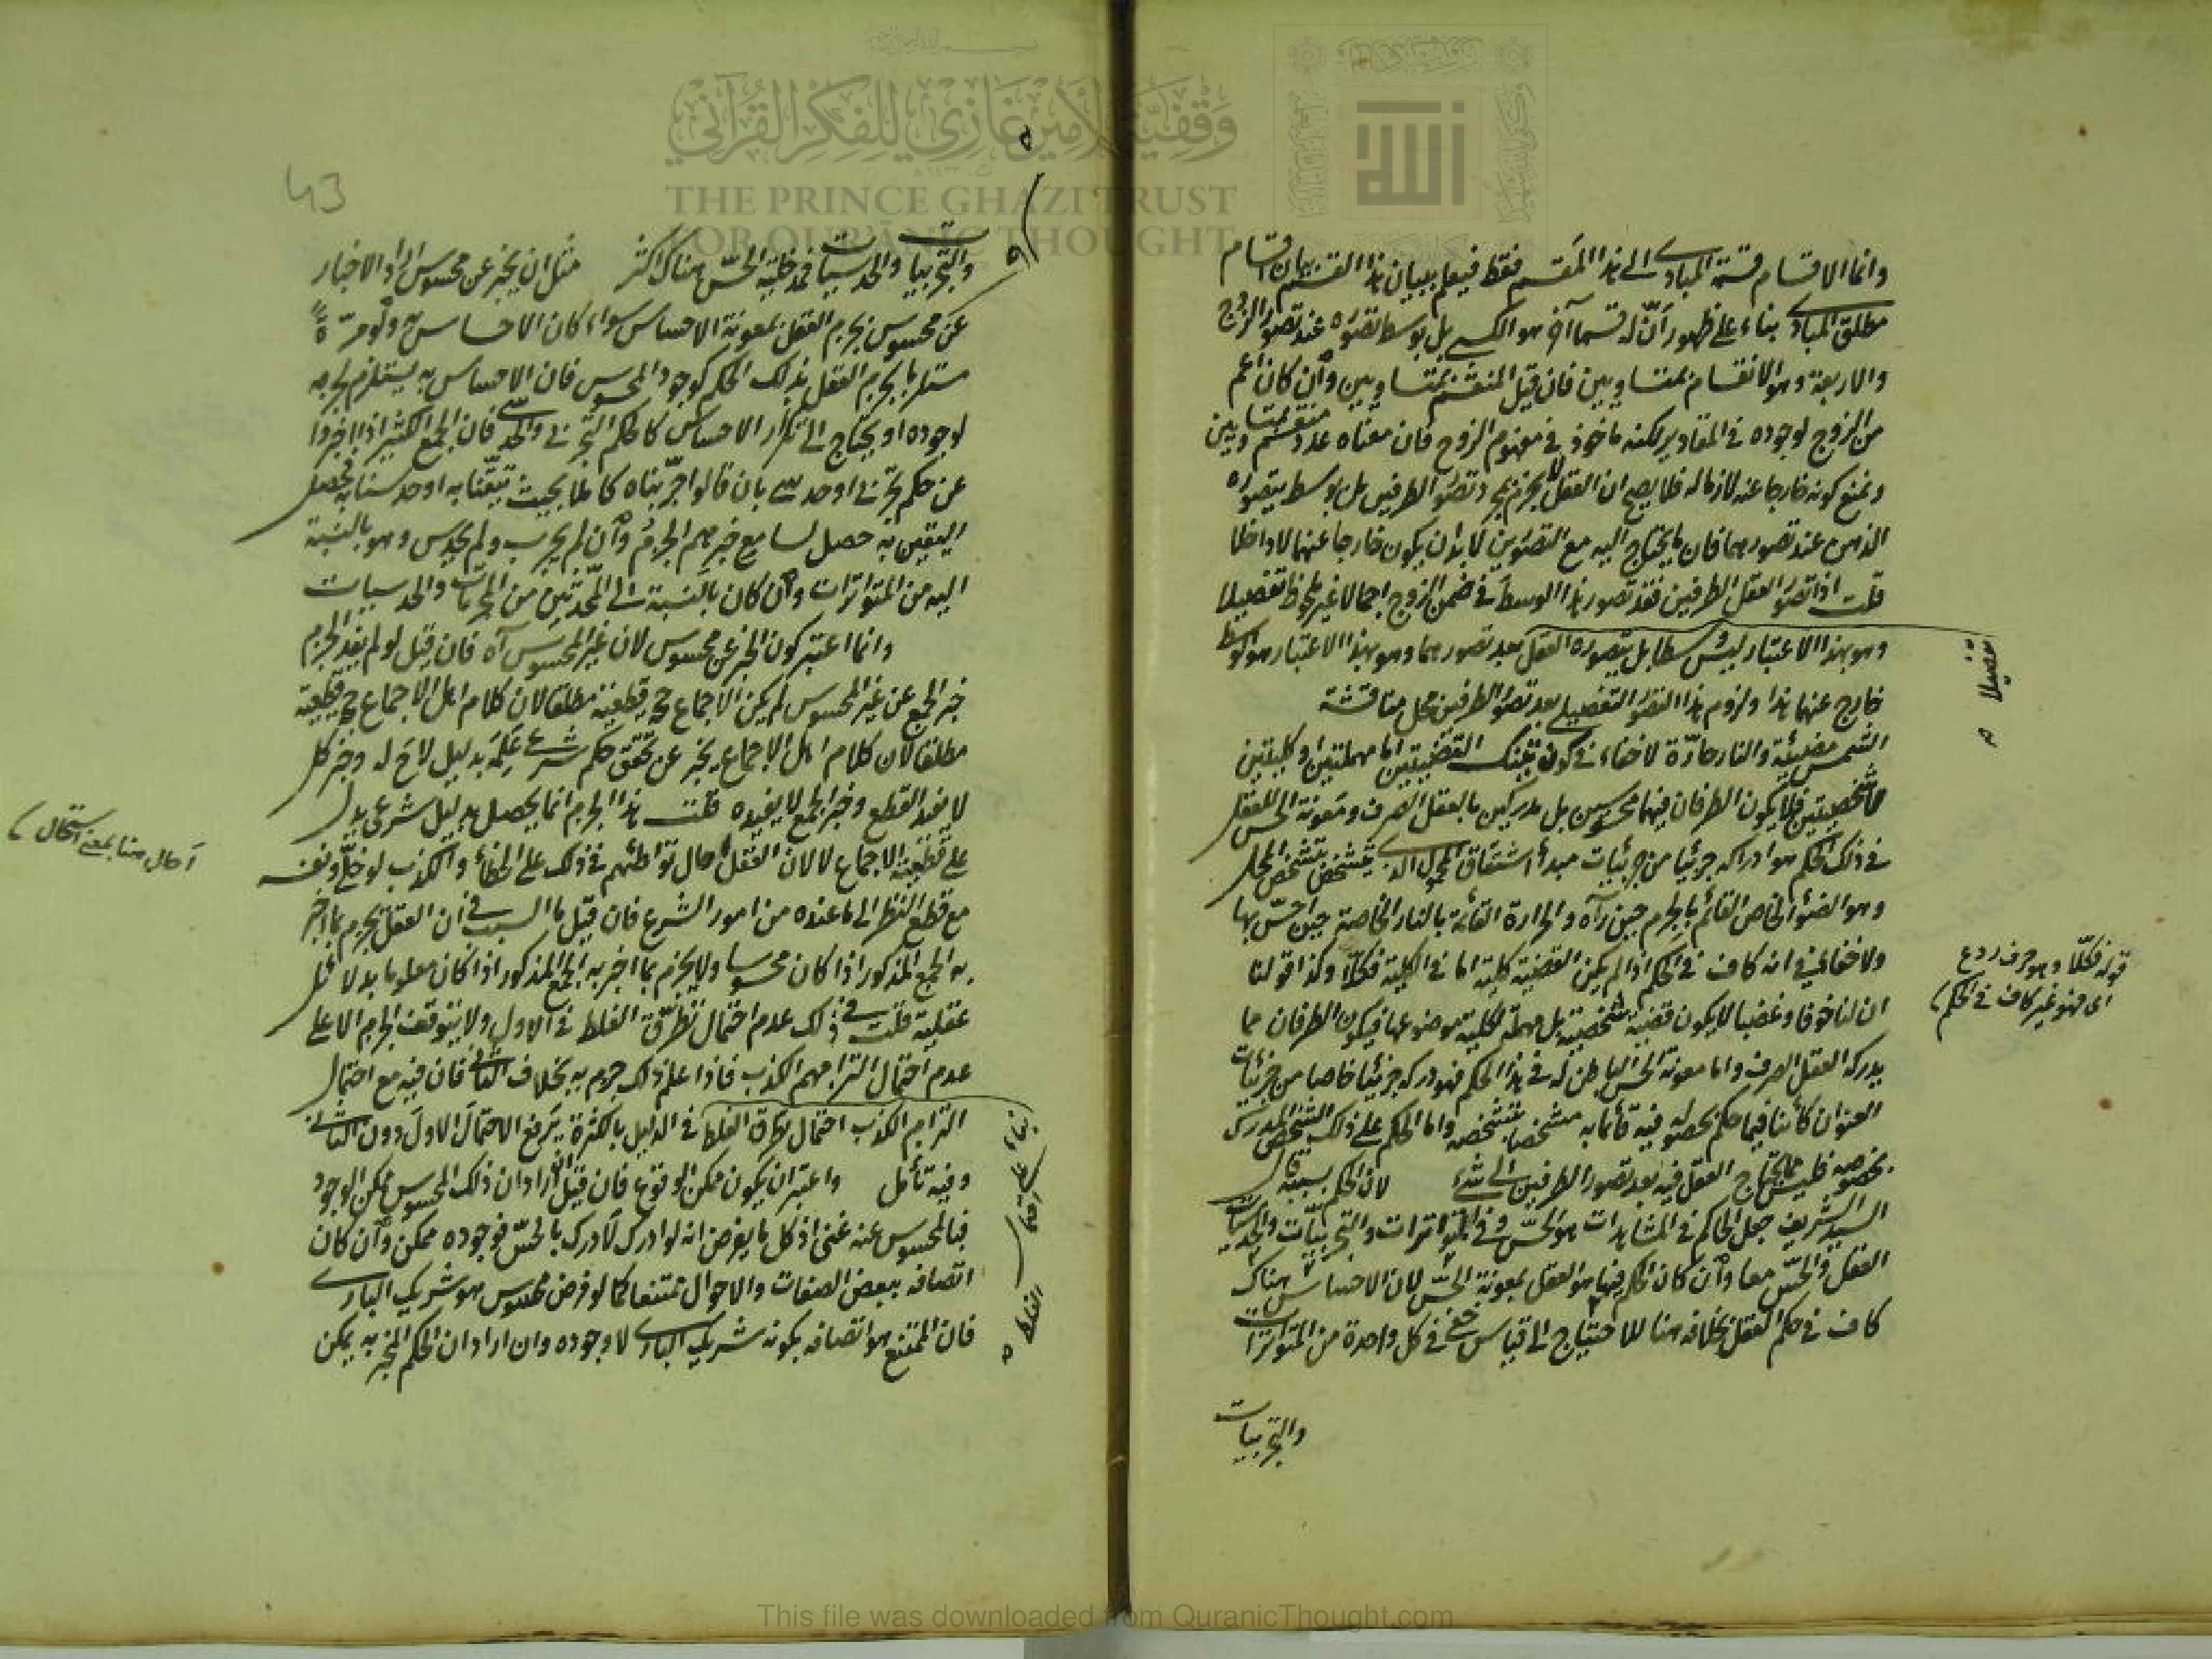 وانما الاقسام قسمة المبادى الى هذا المقسم فقط فيعلم ببيان هذا القسم بيان اقسام
مطلق المبادى بناء على ظهور ان له قسما آخر هو الكسبى بل بوسط تصوره عند تصور الزوج
والاربعة وهو الانقسام بمتساويين فان قيل المنقسم بمتساويين وان كان اعم
من الزوج لوجوده فى المقادير لكنه ماخوذ فى مفهوم الزوج فان معناه عدد منقسم بمتساويين
ونمنع كونه خارجا عنه لازما له فلا يصح ان العقل لا يجزم بمجرد تصور الطرفين بل بوسط يتصوره
الذهن عند تصورهما فان ما يحتاج اليه مع التصورين لا بد ان يكون خارجا عنهما لا داخلا
قلت اذا تصور العقل الطرفين فقد تصور هذا الوسط فى ضمن الزوج اجمالا غير ملحوظ تفصيلا
وهو بهذا الاعتبار ليس وسطا بل يتصوره العقل بعد تصورهما وهو بهذا الاعتبار هو الوسط
تفصيلا
خارج عنهما هذا ولزوم هذا التصور التفصيلى بعد تصور الطرفين محل مناقشة
الشمس مضيئة والنار حارة لا خفاء فى كون تينك القضيتين اما مهملتين او كليتين
لا شخصيتين فلا يكون الطرفان فيهما محسوسين بل مدركين بالعقل الصرف ومعونة الحس للعقل
فى ذلك الحكم هو ادراكه جزئيا من جزئيات مبدأ اشتقاق المحمول الذى يتشخص بتشخص المحل
وهو الضوء الخاص القائم بالجرم حين رآه والحرارة القائمة بالنار الخاصة حين احس بها
ولا خفاء فى انه كاف فى الحكم اذا لم يكن القضية كلية اما فى الكلية فكلا وكذا قولنا
قوله فكلا وهو حرف ردع
اى فهو غير كاف فى الحكم
ان لنا خوفا وغضبا لا يكون قضية شخصية بل مهملة لكلية موضوعها فيكون الطرفان مما
يدركه العقل الصرف واما معونة الحس الباطن له فى هذا الحكم فهو دركه جزئيا خاصا من جزئيات
العنوان كائنا فيما حكم بحصوله فيه قائما به متشخصا بتشخصه واما الحكم على ذلك الشخص المدرك
بخصوصه فليس مما يحتاج العقل فيه بعد تصور الطرفين الى شئ لان الحكم بسببه قال
السيد الشريف جعل الحاكم فى المشاهدات هو الحس وفى المتواترات والتجربيات والحدسيات
العقل والحس معا وان كان الحكم فيها هو العقل بمعونة الحس لان الاحساس هناك
كاف فى حكم العقل بخلافه هنا للاحتياج الى قياس خفى فى كل واحدة من المتواترات
والتجربيات
43
والتجربيات والحدسيات فمدخلية الحس هناك اكثر مثل ان يخبر عن محسوس او الاخبار
عن محسوس بجزم العقل بمعونة الاحساس سواء كان الاحساس به ولو مرة
مستلزما بجزم العقل بذلك الحكم كوجود المحسوس فان الاحساس به يستلزم بجزمه
لوجوده او يحتاج الى تكرار الاحساس كالحكم التجربى والحدسى فان الجمع الكثير اذا اخبروا
عن حكم تجربى او حدسى بان قالوا جربناه كاملا بحيث تيقنا به او حدسنا به فحصل
اليقين به حصل لسامع خبرهم الجزم وان لم يجرب ولم يحدس وهو بالنسبة
اليه من المتواترات وان كان بالنسبة الى المحدثين من المجربات والحدسيات
وانما اعتبر كون الخبر عن محسوس لان غير المحسوس آه فان قيل لو لم يفد الجزم
خبر الجمع عن غير المحسوس لم يكن الاجماع حجة قطعية مطلقا لان كلام اهل الاجماع حجة قطعية
مطلقا لان كلام اهل الاجماع يخبر عن تحقق حكم شرعى علمه بدليل لاح له وخبر كل
لا يفيد القطع وخبر الجمع لا يفيده قلت هذا الجزم انما يحصل بدليل شرعى يدل
على قطعية الاجماع لا لان العقل احال تواطئهم فى ذلك على الخطأ والكذب لو خلى ونفسه
أحال هنا بمعنى استحال
مع قطع النظر الى ما عنده من امور الشرع فان قيل ما السبب فى ان العقل يجزم بما اخبر
به الجمع المذكور اذا كان محسوسا ولا يجزم بما اخبر به الجمع المذكور اذا كان معلوما بدلائل
عقلية قلت فى ذلك عدم احتمال تطرق الغلط فى الاول ولا يتوقف الجزم الا على
عدم احتمال التزامهم الكذب فاذا علم ذلك جزم به بخلاف الثانى فان فيه مع احتمال
التزام الكذب احتمال تطرق الغلط فى الدليل بالكثرة يرتفع الاحتمال الاول دون الثانى
بناء على احتمال الغلط
وفيه تأمل واعتبر ان يكون ممكن الوقوع فان قيل ان اراد ان ذلك المحسوس ممكن الوجود
فبالمحسوس عنه غنى اذ كل ما يفرض انه لو ادرك لادرك بالحس فوجوده ممكن وان كان
اتصافه ببعض الصفات والاحوال ممتنعا كما لو فرض محسوس هو شريك البارى
فان الممتنع هو اتصافه بكونه شريك البارى لا وجوده وان اراد ان الحكم المخبر به يمكن
وقفية الأمير غازي للفكر القرآني
THE PRINCE GHAZI TRUST
FOR QUR'ĀNIC THOUGHT
الله
This file was downloaded from QuranicThought.com